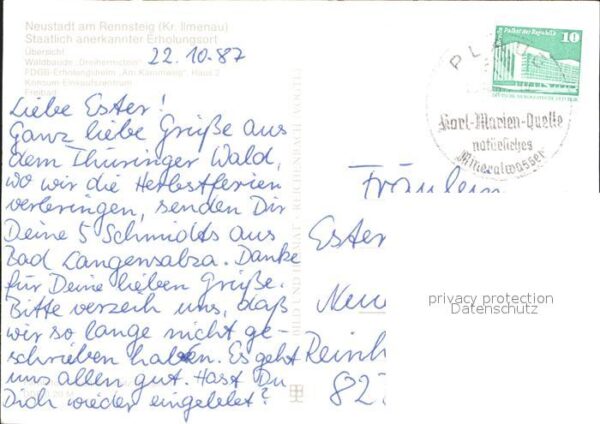 Neustadt am Rennsteig (Kr. Ilmenau)
Staatlich anerkannter Erholungsort
Übersicht
Waldbaude "Dreiherrnstein"
FDGB-Erholungsheim "Am Kammweg", Haus 2
Konsum-Einkaufszentrum
Freibad
22.10.87
Liebe Ester!
Ganz liebe Grüße aus
dem Thüringer Wald,
wo wir die Herbstferien
verbringen, senden Dir
Deine 5 Schmidts aus
Bad Langensalza. Danke
für Deine lieben Grüße.
Bitte verzeih uns, daß
wir so lange nicht ge-
schrieben haben. Es geht
uns allen gut. Hast Du
Dich wieder eingelebt?
BILD UND HEIMAT REICHENBACH
Palast der Republik
10
PLAUE
Karl-Marien-Quelle
natürliches
Mineralwasser
Fräulein
Ester
Neu
Reinh
827
privacy protection
Datenschutz